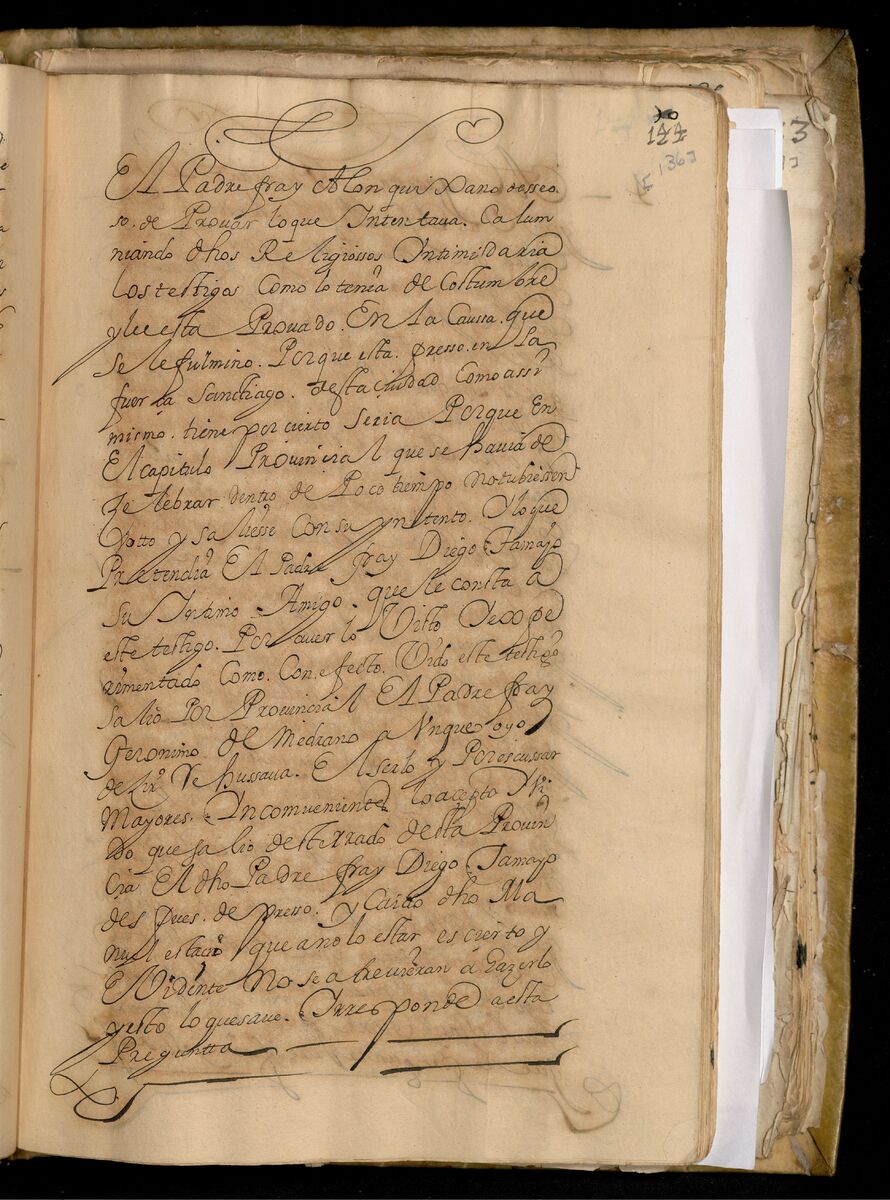 144
[136]
El Padre fray Alon quixano desseo
so. de Provar lo que Intentava. Calum
niando dhos Religiossos Intimidaria
los testigos Como lo tenia de Costumbre
y le esta Provado. En la Caussa. que
se le fulmino. Porque esta. presso. en la
fuerça Sanctiago. desta ciudad Como assi
mismo. tiene por cierto seria Porque En
El capitulo Provincial que se havia de
Zelebrar dentro de Poco tiempo no tubiessen
Votto y saliesse con su yntento. Y lo que
Pretendia El Padre fray Diego Tamayo
su Intimo Amigo. que le consta a
este testigo. Por aver lo Visto Y expe
rimentado Como. Con efecto. Vido este testigo
salio Por Provincial El Padre fray
Geronimo de Medrano a Unque oyo
deçir Rehussava. El serlo y Por escussar
Mayores. Incomuenientes lo acepto Y Vi
do que salio desterrado desta Provin
cia El dho Padre fray Diego Tamayo
despues. de presso. y Caido dho Ma
nuel estacio que a no lo estar es cierto y
Evidente No se atrevieran a hazerlo
y esto lo que save. Y rresponde a esta
Pregunta